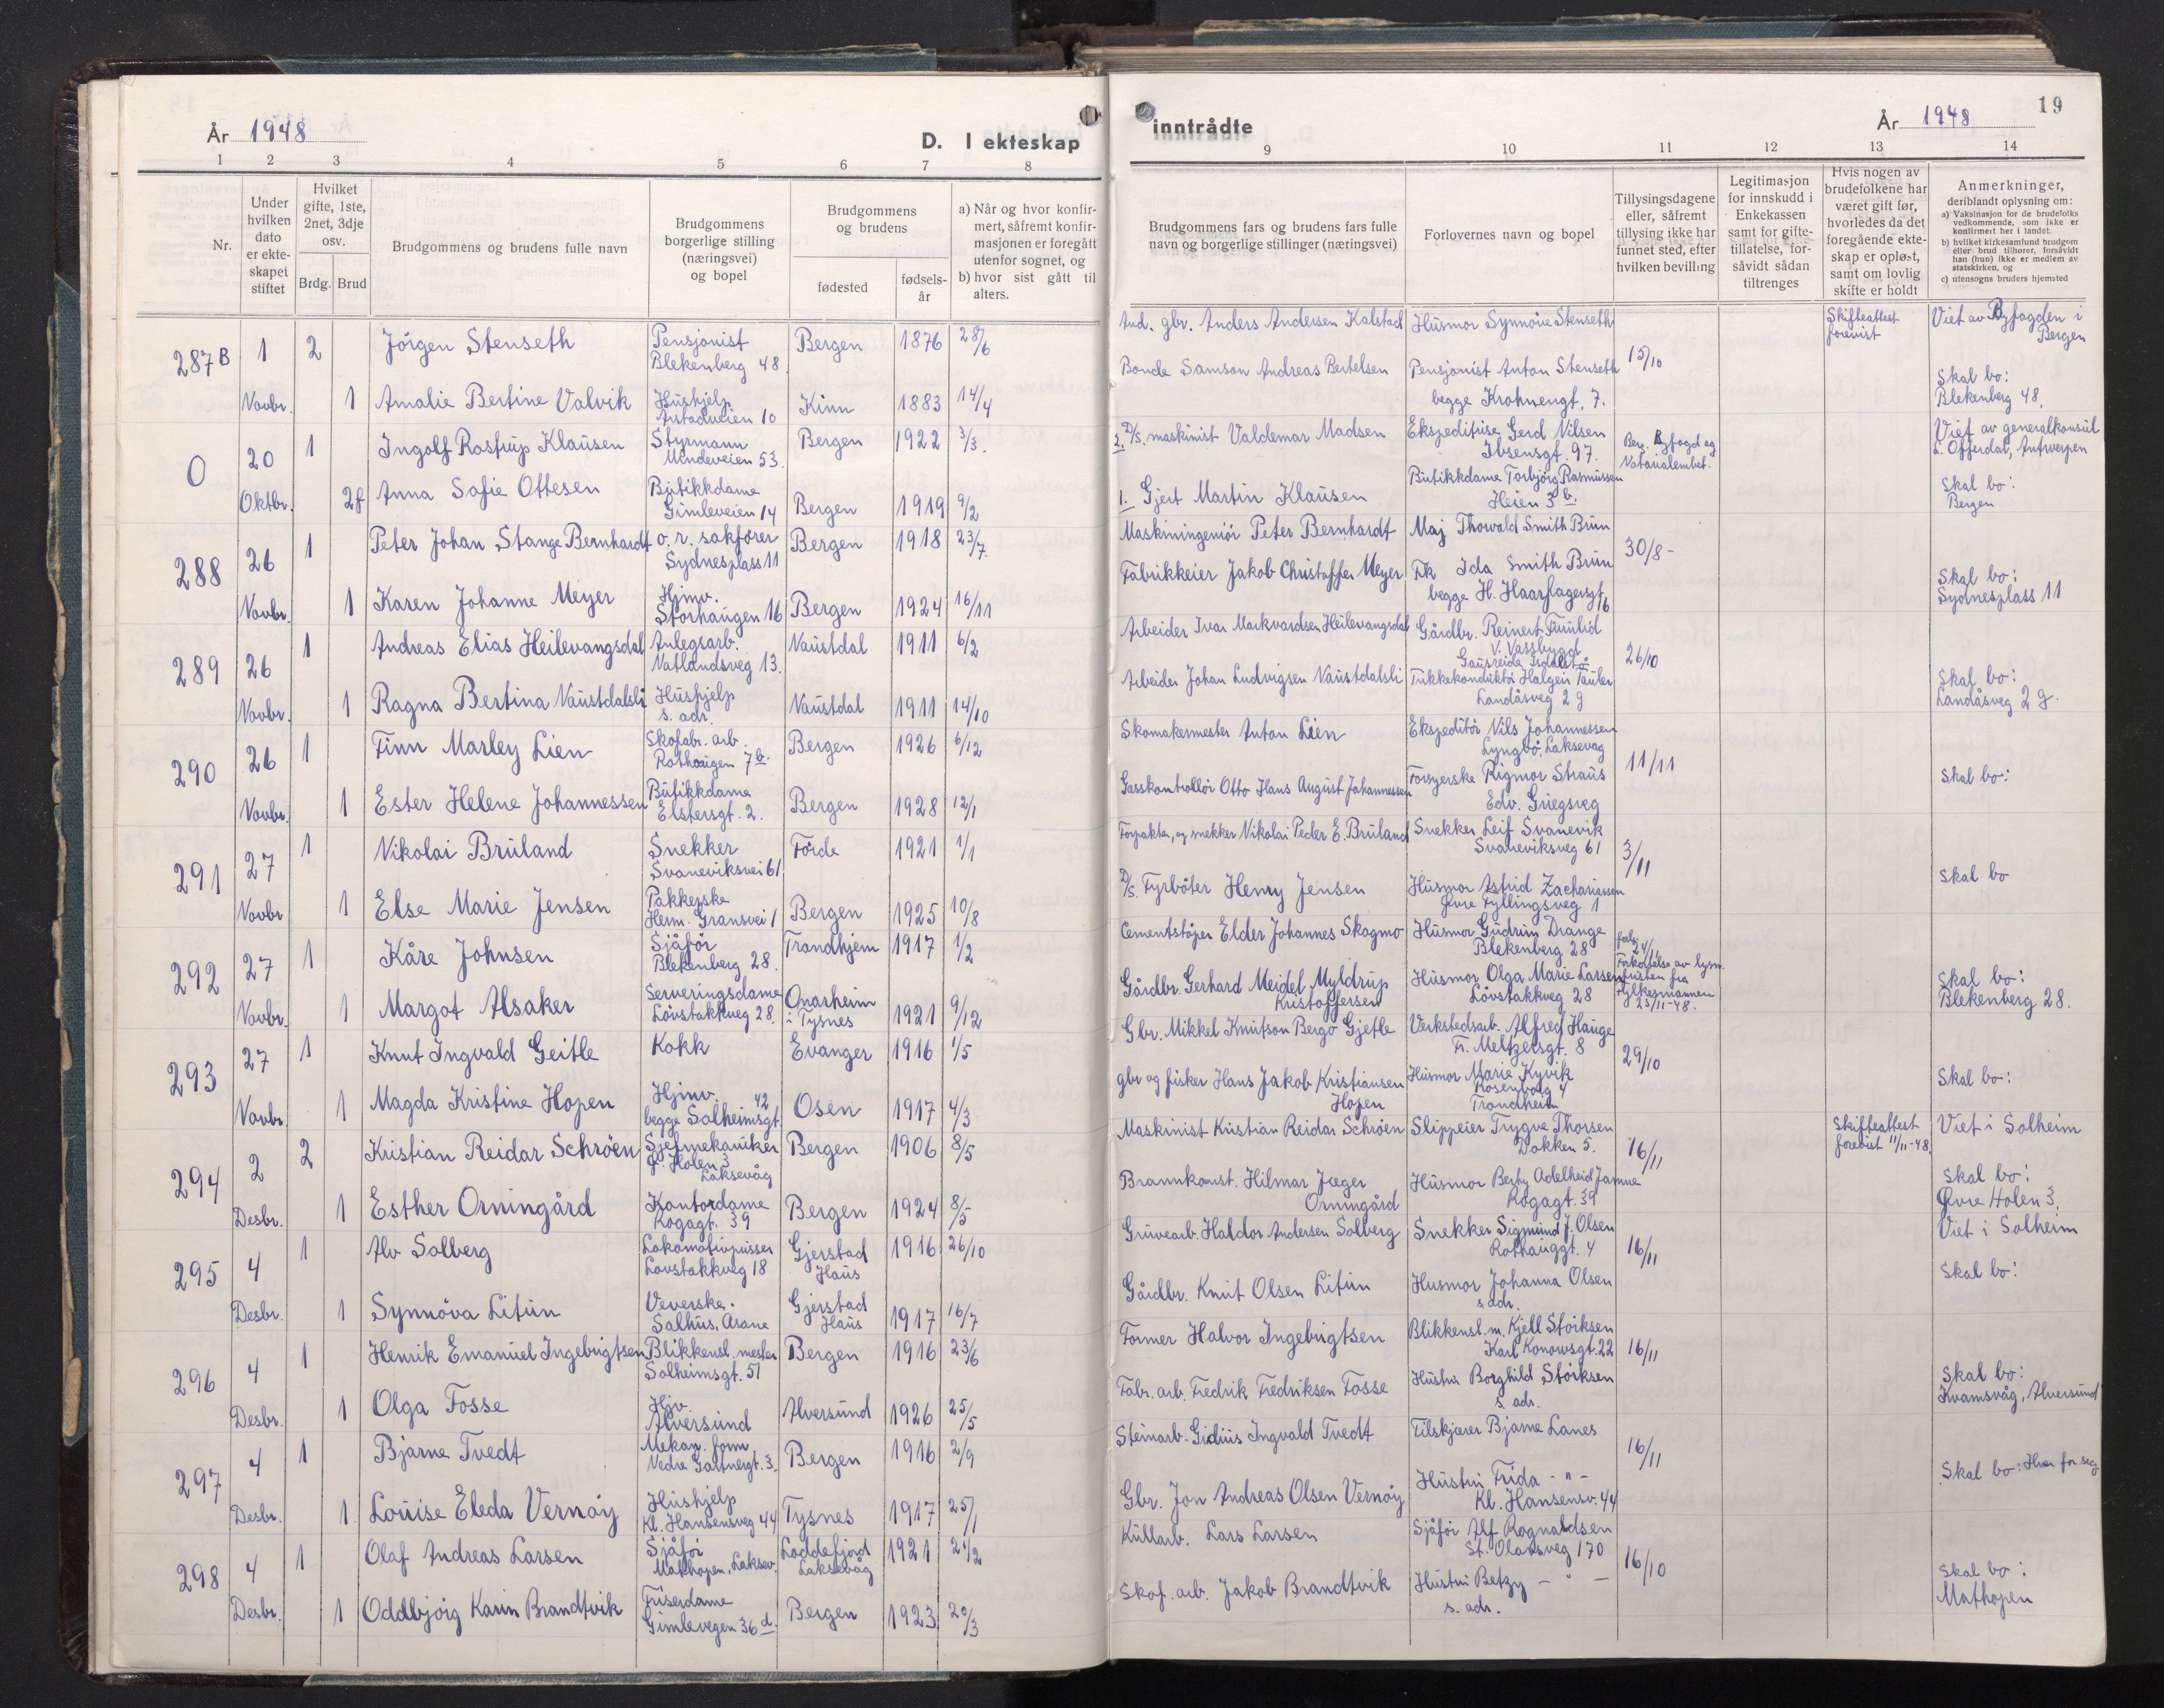 År 1948
D. I ekteskap
1 2 3 4 5 6 7 8
Nr.
Under hvilken dato er ekteskapet stiftet
Hvilket gifte, 1ste, 2net, 3dje osv.
Brdg. Brud
Brudgommens og brudens fulle navn
Brudgommens borgerlige stilling (næringsvei) og bopel
Brudgommens og brudens
fødested
fødselsår
a) Når og hvor konfirmert, såfremt konfirmasjonen er foregått utenfor sognet, og
b) hvor sist gått til alters.
287B 1 2 Jörgen Stenseth Pensjonist Bergen 1876 28/6
Blekenberg 48
Novbr. 1 Amalie Bertine Valvik Hushjelp Kinn 1883 14/4
10
0 20 1 Ingolf Rostrup Klausen Styrmann Bergen 1922 3/3.
Mindeveien 53.
Oktbr. 2f Anna Sofie Ottesen Butikkdame
Gimleveien 14 Bergen 1919 9/2
288 26 1 Peter Johan Stange Bernhardt o. r. sakförer Bergen 1918 23/7
Sydnesplass 11
Novbr. 1 Karen Johanne Meyer Hjmv.
Storhaugen 16 Bergen 1924 16/11
289 26 1 Andreas Elias Heilevangsdal Anlegsarb. Naustdal 1911 6/2
Natlandsveg 13.
Novbr. 1 Ragna Bertina Naustdalsli Hushjelp Naustdal 1911 14/10
s. adr.
290 26 1 Finn Marley Lien Skofabr. arb. Bergen 1926 6/12
Rothaugen 7b.
Novbr. 1 Ester Helene Johannessen Butikkdame
Elstersgt. 2. Bergen 1928 12/1
291 27 1 Nikolai Bruland Snekker Förde 1921 1/1
Svaneviksvei 61
Novbr 1 Else Marie Jensen Pakkerske
Herm. Gransvei 1 Bergen 1925 10/8
292 27 1 Kåre Johnsen Sjåför Trondhjem 1917 1/2
Blekenberg 28.
Novbr. 1 Margot Alsaker Serveringsdame Onarheim
Lövstakkveg 28. i Tysnes 1921 9/12
293 27 1 Knut Ingvald Geitle Kokk Evanger 1916 1/5
Novbr. 1 Magda Kristine Hopen Hjmv. Osen 1917 4/3
begge Solheimsgt. 42
294 2 2 Kristian Reidar Schröen Sjefmekaniker Bergen 1906 8/5
Ø. Holen 3
Laksevåg
Desbr. 1 Esther Orningård Kontordame
Kogagt. 39 Bergen 1924 8/5
295 4 1 Alv Solberg Lokomotivpusser Gjerstad 1916 26/10
Lovstakkveg 18 Haus
Desbr. 1 Synnöva Litun Veverske. Gjerstad
Salhus, Åsane Haus 1917 16/7
296 4 1 Henrik Emanuel Ingebrigtsen Blikkensl. mester Bergen 1916 23/6
Solheimsgt. 51
Desbr. 1 Olga Fosse Hjv.
Alversund Alversund 1926 25/5
297 4 1 Bjarne Tvedt Mekan. form. Bergen 1916 2/9
Nedre Gartnergt. 3.
Desbr. 1 Louise Eleda Vernöy Hushjelp
Kl. Hansensveg 44 Tysnes 1917 25/1
298 4 1 Olaf Andreas Larsen Sjåför Loddefjord 1921
Mathopen, Laksev. Laksevåg
Desbr. 1 Oddbjörg Karin Brandtvik Friserdame
Gimlevegen 36 d. Bergen 1923 20/3
inntrådte
År 1948
19
9 10 11 12 13 14
Brudgommens fars og brudens fars fulle navn og borgerlige stillinger (næringsvei)
Forlovernes navn og bopel
Tillysingsdagene eller, såfremt tillysing ikke har funnet sted, efter hvilken bevilling
Legitimasjon for innskudd i Enkekassen samt for giftetillatelse, forsåvidt sådan tiltrenges
Hvis nogen av brudefolkene har været gift før, hvorledes da det foregående ekteskap er opløst, samt om lovlig skifte er holdt
Anmerkninger, deriblandt oplysning om:
a) Vaksinasjon for de brudefolks vedkommende, som ikke er konfirmert her i landet.
b) hvilket kirkesamfund brudgom eller brud tilhører, forsåvidt han (hun) ikke er medlem av statskirken, og
c) utensogns bruders hjemsted
gbr. Anders Andersen Kalstad Husmor Synnöve Stenseth Skifteattest forevist Viet av Byfogden i Bergen
Bonde Samson Andreas Bertelsen Pensjonist Anton Stenseth 15/10
begge Krohnengt. 7. Skal bo:
Blekenberg 48.
2. D/S. maskinist Valdemar Madsen Ekspeditrise Gerd Nilsen Viet av generalkonsul
Ibsensgt. 97. Berg. Byfogd og Notarialembet. L. Offerdal, Antwerpen
Butikkdame Torbjörg Rasmussen
1. Gjert Martin Klausen Heien 3 b. Skal bo:
Bergen
Maskiningeniör Peter Bernhardt Maj Thorvald Smith Brun
30/8-
Fabrikkeier Jakob Christoffer Meyer Frk Ida Smith Brun Skal bo:
begge H. Haarfagersgt. 16 Sydnesplass 11
Arbeider Ivar Markvardsen Heilevangsdal Gårdbr. Reinert Furulid
V. Vassbygd
26/10
Arbeider Johan Ludvigsen Naustdalsli Trikkekonduktör Halgeir Tauler Skal bo:
Landåsveg 2 g Landåsveg 2 g.
Skomakermester Anton Lien Ekspeditör Nils Johannessen
Lyngbö, Laksevåg 11/11
Gasskontrollör Otto Hans August Johannessen Forsyerske Rigmor Straus Skal bo:
Edv. Griegsveg
Forpakter, og snekker Nikolai Peder E. Bruland Snekker Leif Svanevik
Svaneviksveg 61 3/11
D/S. Fyrböter Henry Jensen Husmor Astrid Zachariassen Skal bo
Övre Fyllingsveg 1
Cementstöper Elder Johannes Skogmo Husmor Gudrun Drange
Blekenberg 28 24/11
Forkortelse av lysn. fristen fra Fylkesmannen 23/11-48.
Gårdbr. Gerhard Meidel Myldrup Husmor Olga Marie Larsen Skal bo:
Kristoffersen Lövstakkveg 28 Blekenberg 28.
Gbr. Mikkel Knutson Bergo Gjetle Verkstedsarb. Alfred Hauge
Fr. Meltzersgt. 8 29/10
gbr og fisker Hans Jakob Kristiansen Husmor Marie Kyvik Skal bo:
Hopen Rosenborg 4
Trondheim
Maskinist Kristian Reidar Schröen Slippeier Trygve Thorsen Skifteattest Viet i Solheim
Dokken 5. 16/11 forevist 11/11-48.
Brannkonst. Hilmar Jæger Husmor Adelheid Skal bo:
Orningård Kogagt. 39 Øvre Holen 3.
Gruvearb. Haldor Andersen Solberg Snekker Sigmund J. Olsen Viet i Solheim
Rothauggt. 4 16/11
Gårdbr. Knut Olsen Litun Husmor Johanna Olsen Skal bo:
s. adr.
Former Halvor Ingebrigtsen Blikkensl. m. Kjell Störksen
Karl Konowsgt. 22 16/11
Fabr. arb. Fredrik Fredriksen Fosse Hustru Borghild Störksen Skal bo:
s. adr. Kvamsvåg, Alversund
Steinarb. Gidius Ingvald Tvedt Tilskjærer Bjarne Lanes
16/11
Gbr. Jon Andreas Olsen Vernöy Hustru Frida - " - Skal bo: Hver for seg
Kl. Hansensv. 44
Kullarb. Lars Larsen Sjåför Alf Rognaldsen
St. Olavsveg 170 16/10
Skof. arb. Jakob Brandtvik Hustru Betzy - " - Skal bo:
s. adr. Mathopen